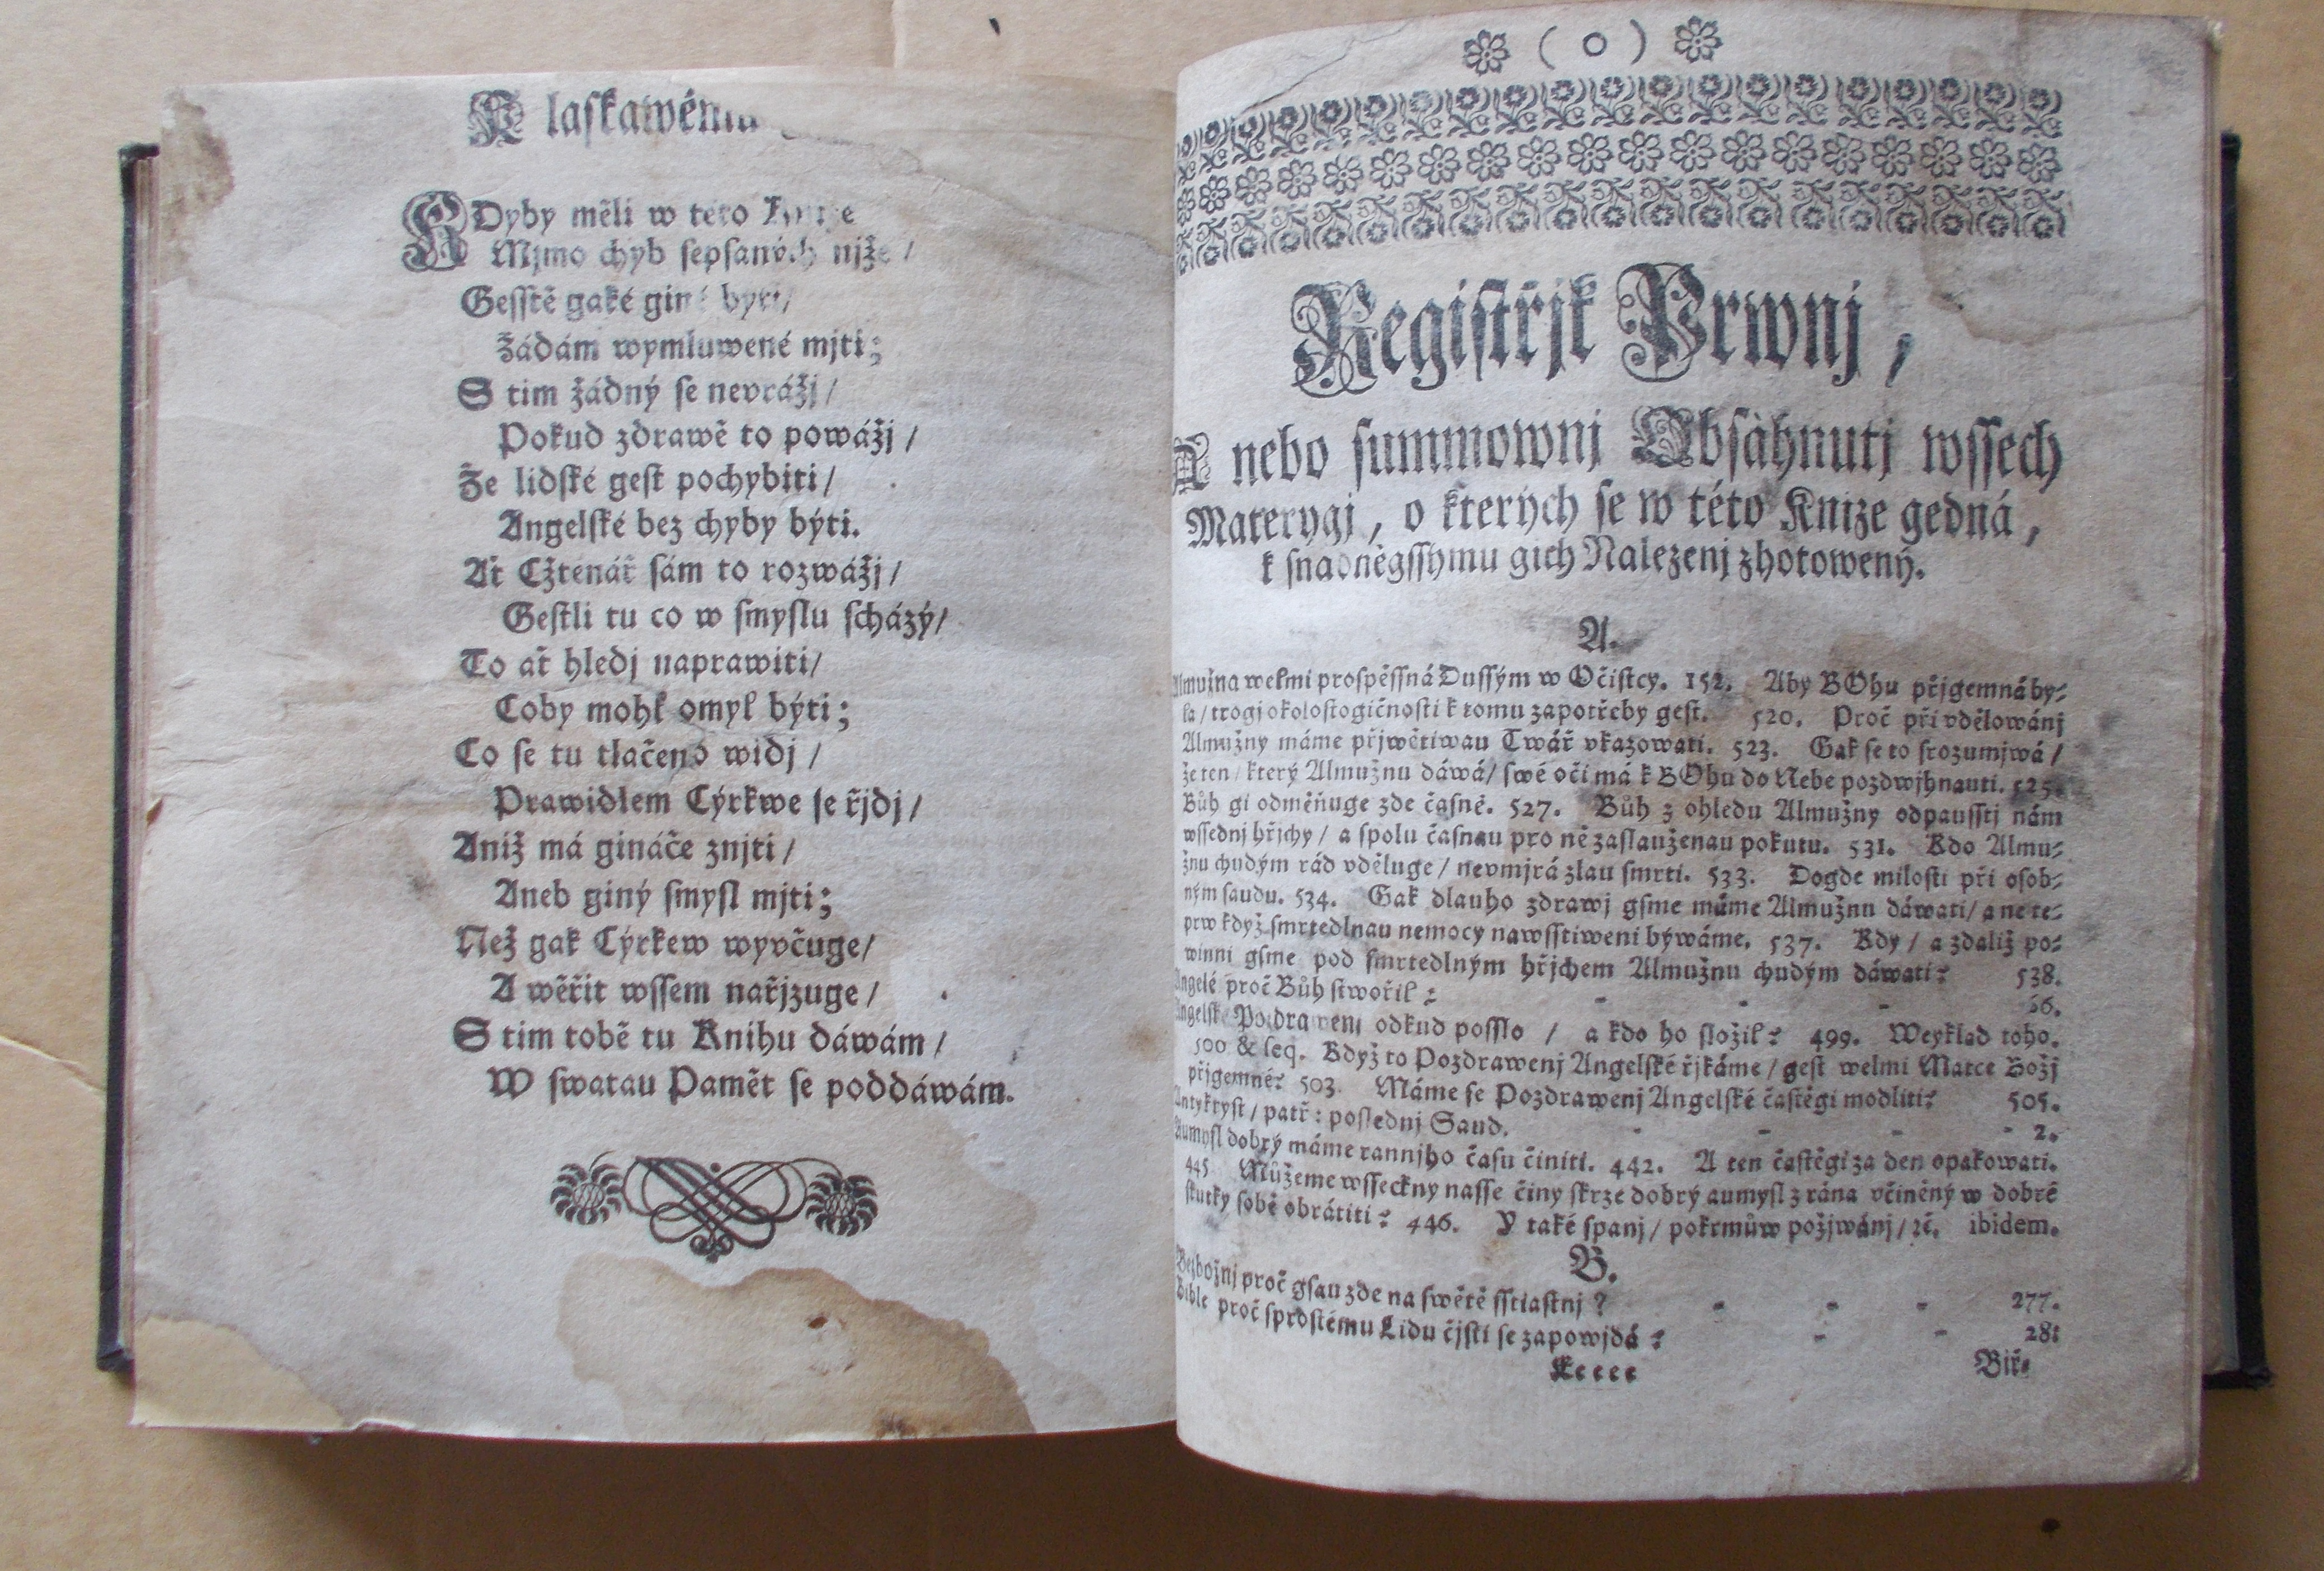 K laſkawému
KDyby měli w této Knize
Mjmo chyb ſepſaných njže /
Geſſtě gaké giné býti /
Žádám wymluwené mjti;
S tim žádný ſe nevráži /
Pokud zdrawě to powážj /
Že lidſké geſt pochybiti /
Angelſké bez chyby býti.
Ať Cžtenář ſám to rozwážj /
Geſtli tu co w ſmyſlu ſcházý /
To ať hledj naprawiti /
Coby mohl omyl býti;
Co ſe tu tlačeno widj /
Prawidlem Cýrkwe ſe řjdj /
Aniž má gináče znjti /
Aneb giný ſmyſl mjti;
Než gak Cýrkew wyvčuge /
A wěřit wſſem nařjzuge /
S tim tobě tu Knihu dáwám /
W ſwatau Pamět ſe poddáwám.
( O )
Regiſtřjk Prwnj,
A nebo ſummownj Obſàhnutj wſſech
Materygj, o kterých ſe w této Knize gedná,
k ſnadněgſſymu gich Nalezenj zhotowený.
A.
Almužna welmi proſpěſſná Duſſým w Očiſtcy. 152. Aby BOhu přjgemná by⸗
la / trogj okoloſtogičnoſti k tomu zapotřeby geſt. 520. Proč při vdělowánj
Almužny máme přjwětiwau Twář vkazowati. 523. Gak ſe to ſrozumjwá /
že ten / který Almužnu dáwá / ſwé oči má k BOhu do Nebe pozdwjhnauti. 525.
Bůh gi odměňuge zde čaſně. 527. Bůh z ohledu Almužny odpauſſtj nám
wſſednj hřjchy / a ſpolu čaſnau pro ně zaſlauženau pokutu. 531. Kdo Almu⸗
žnu chudým rád vděluge / nevmjrá zlau ſmrti. 533. Dogde miloſti při oſob⸗
ným ſaudu. 534. Gak dlauho zdrawj gſme máme Almužnu dáwati / a ne te⸗
prw když ſmrtedlnau nemocy nawſſtiweni býwáme. 537. Kdy / a zdaliž po⸗
winni gſme pod ſmrtedlným hřjchem Almužnu chudým dáwati? 538.
Angelé proč Bůh ſtwořil? - - - 66.
Angelſké Pozdrawenj odkud poſſlo / a kdo ho ſložil? 499. Weyklad toho.
500 & ſeq. Když to Pozdrawenj Angelſké řjkáme / geſt welmi Matce Božj
přjgemné? 503. Máme ſe Pozdrawenj Angelſké čaſtěgi modliti? 505.
Antykryſt / patř: poſlednj Saud. - - - - 2.
Aumyſl dobrý máme rannjho čaſu činiti. 442. A ten čaſtěgi za den opakowati.
445. Můžeme wſſeckny naſſe činy ſkrze dobrý aumyſl z rána včiněný w dobré
ſkutky ſobě obrátiti? 446. Y také ſpanj / pokrmůw požjwánj / ꝛč. ibidem.
B.
Bezbožnj proč gſau zde na ſwětě ſſtiaſtnj? - - - 277.
Bible proč ſproſtému Lidu čjſti ſe zapowjdá? - - 28:
Kkkkk
Biř⸗